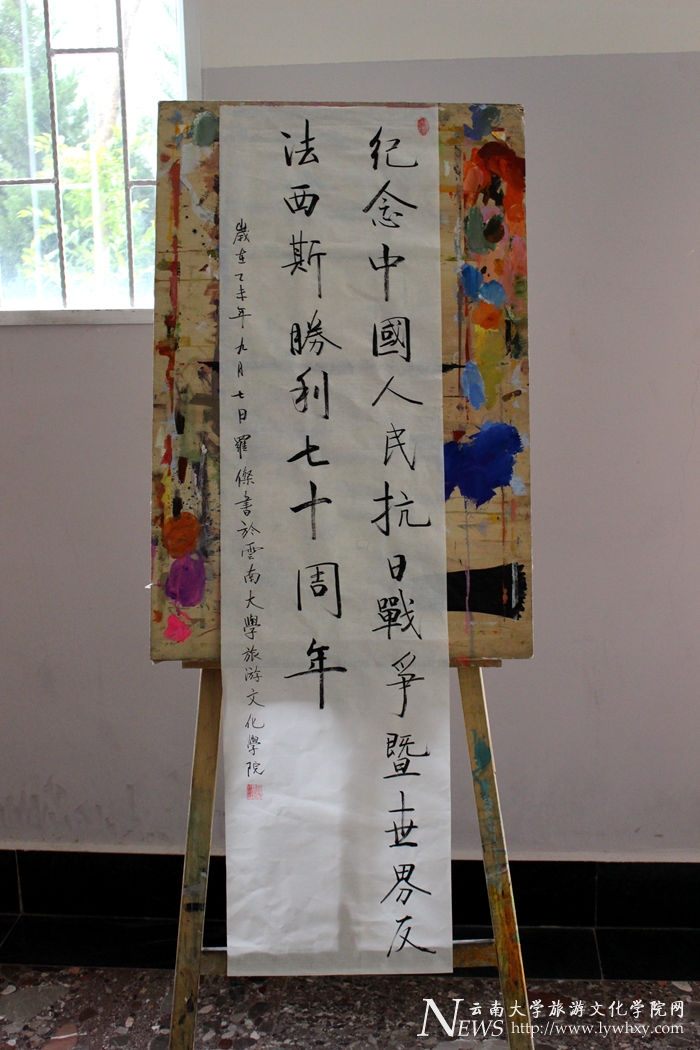 紀念中國人民抗日戰爭暨世界反
法西斯勝利七十周年
歲在乙未年九月七日羅傑書於雲南大學旅游文化學院
云南大学旅游文化学院网
NEWS http://www.lywhxy.com